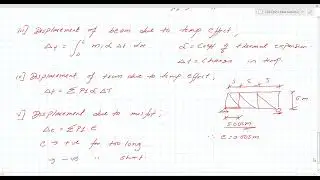 iii] Displacement of beam due to temp effect,
Δt = ∫₀ᴸ m₁ α Δt dx
α = Coeff of thermal expansion
Δt = Change in temp.
iv] Displacement of truss due to temp effect;
Δt = Σ P1 α ΔT
5 5 5
6m
5.005m
∴ e = 0.005m
v] Displacement due to misfit;
Δe = Σ P1 e
e → +ve for too long
→ -ve " short